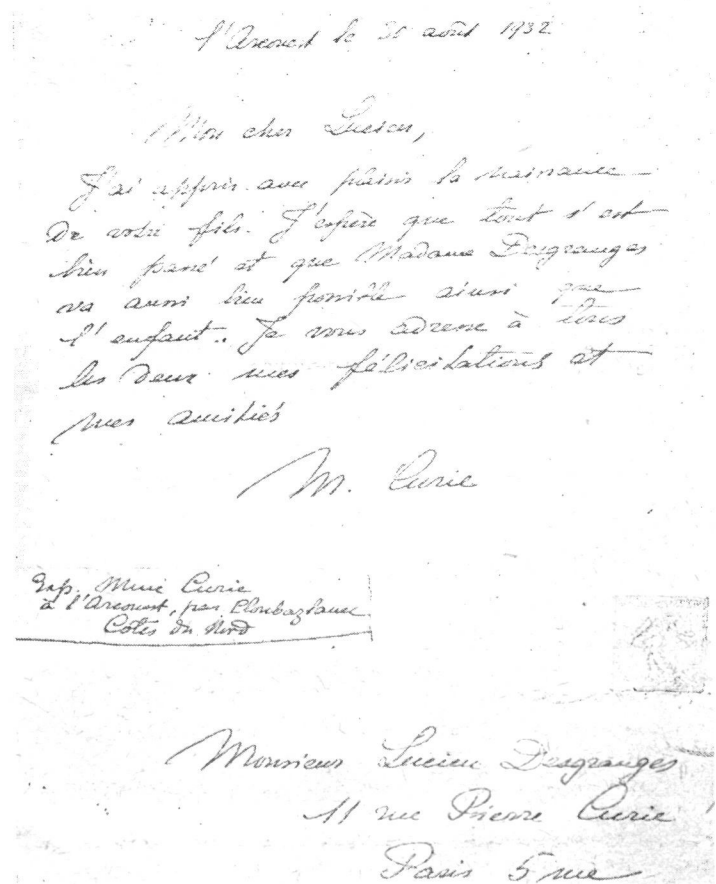 l'Arcouest le 30 août 1932
Mon cher Lucien,
J'ai appris avec plaisir la naissance
de votre fils. J'espère que tout s'est
bien passé et que Madame Desgranges
va aussi bien possible ainsi que
l'enfant. Je vous adresse à tous
les deux mes félicitations et
mes amitiés
M. Curie
Exp. Mme Curie
à l'Arcouest, par Ploubazlanec
Côtes du Nord
Monsieur Lucien Desgranges
11 rue Pierre Curie
Paris 5me